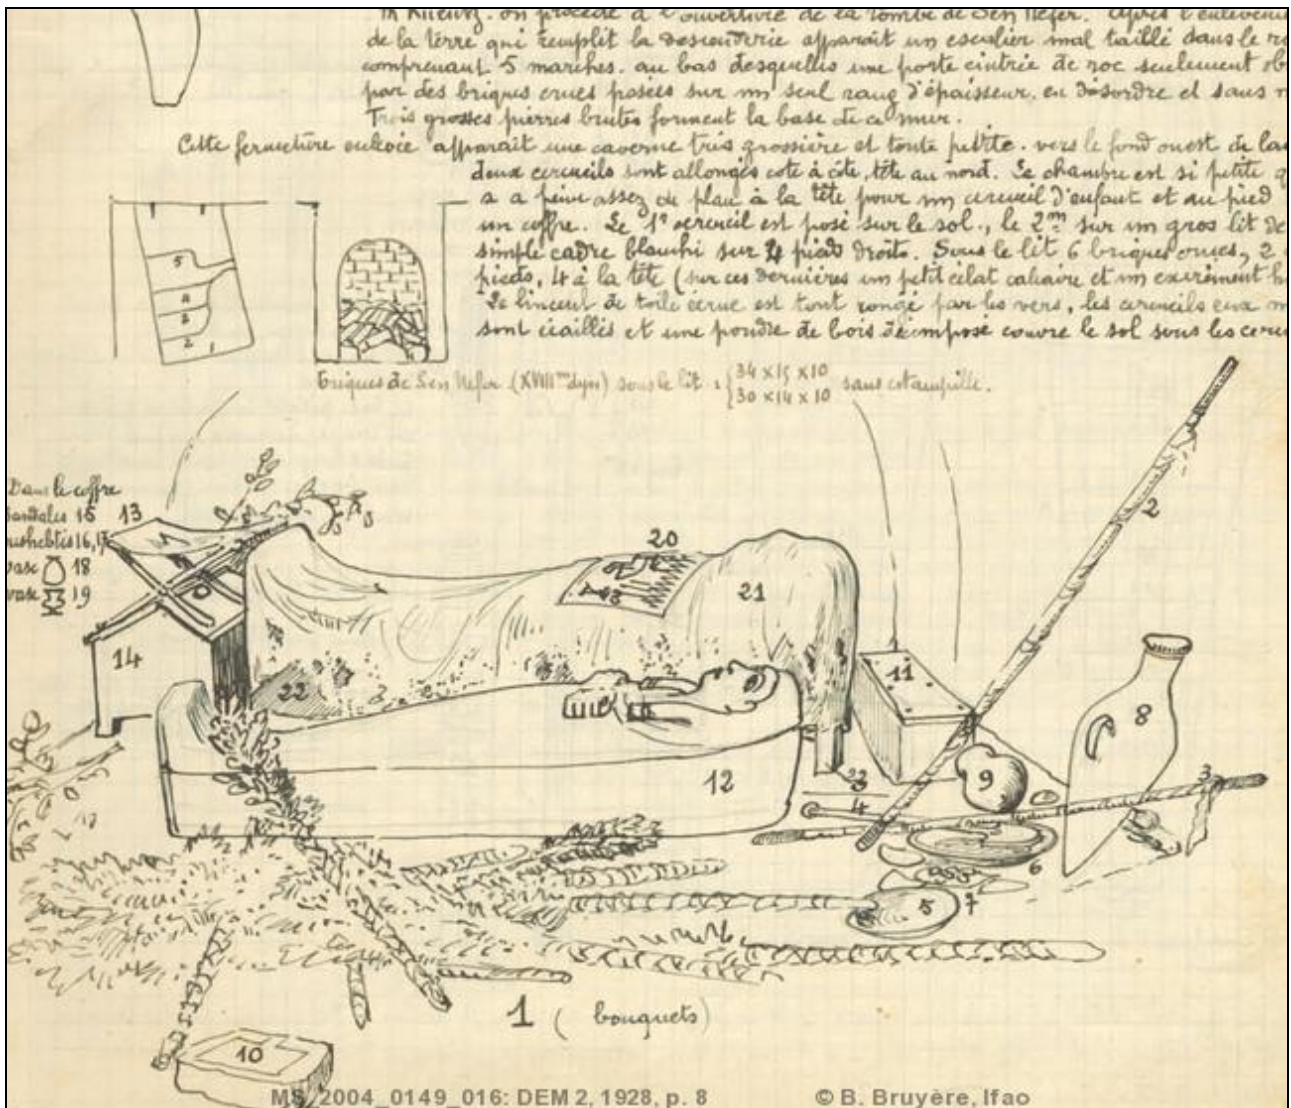 on procède à l'ouverture de la tombe de Sen Nefer. Après
de la terre qui remplit la descenderie apparaît un escalier mal taillé dans le
comprenant 5 marches. au bas desquelles une porte cintrée de roc seulement
par des briques crues posées sur un seul rang d'épaisseur, en désordre et sans
Trois grosses pierres brutes forment la base de ce mur.
Cette fermeture enlevée apparaît une caverne très grossière et toute petite. vers le fond ouest de
deux cercueils sont allongés cote à côte, tête au nord. La chambre est si petite
a peine assez de place à la tête pour un cercueil d'enfant et au pied
un coffre. Le 1er cercueil est posé sur le sol., le 2me sur un gros lit de
simple cadre blanchi sur 4 pieds droits. Sous le lit 6 briques crues, 2
pieds, 4 à la tête (sur ces dernières un petit éclat calcaire et un excrément
Le linceul de toile écrue est tout rongé par les vers, les cercueils eux
sont écaillés et une poudre de bois décomposé couvre le sol sous les
5
4
3
2
1
briques de Sen Nefer (XVIIIme dyn) sous le lit : { 34 x 15 x 10
30 x 14 x 10 sans estampille.
Dans le coffre
sandales 15
ushebtis 16, 17
vase 18
vase 19
13
14
20
21
22
12
11
2
8
9
3
23
4
6
5
7
1 ( bouquets)
10
MS_2004_0149_016: DEM 2, 1928, p. 8 © B. Bruyère, Ifao